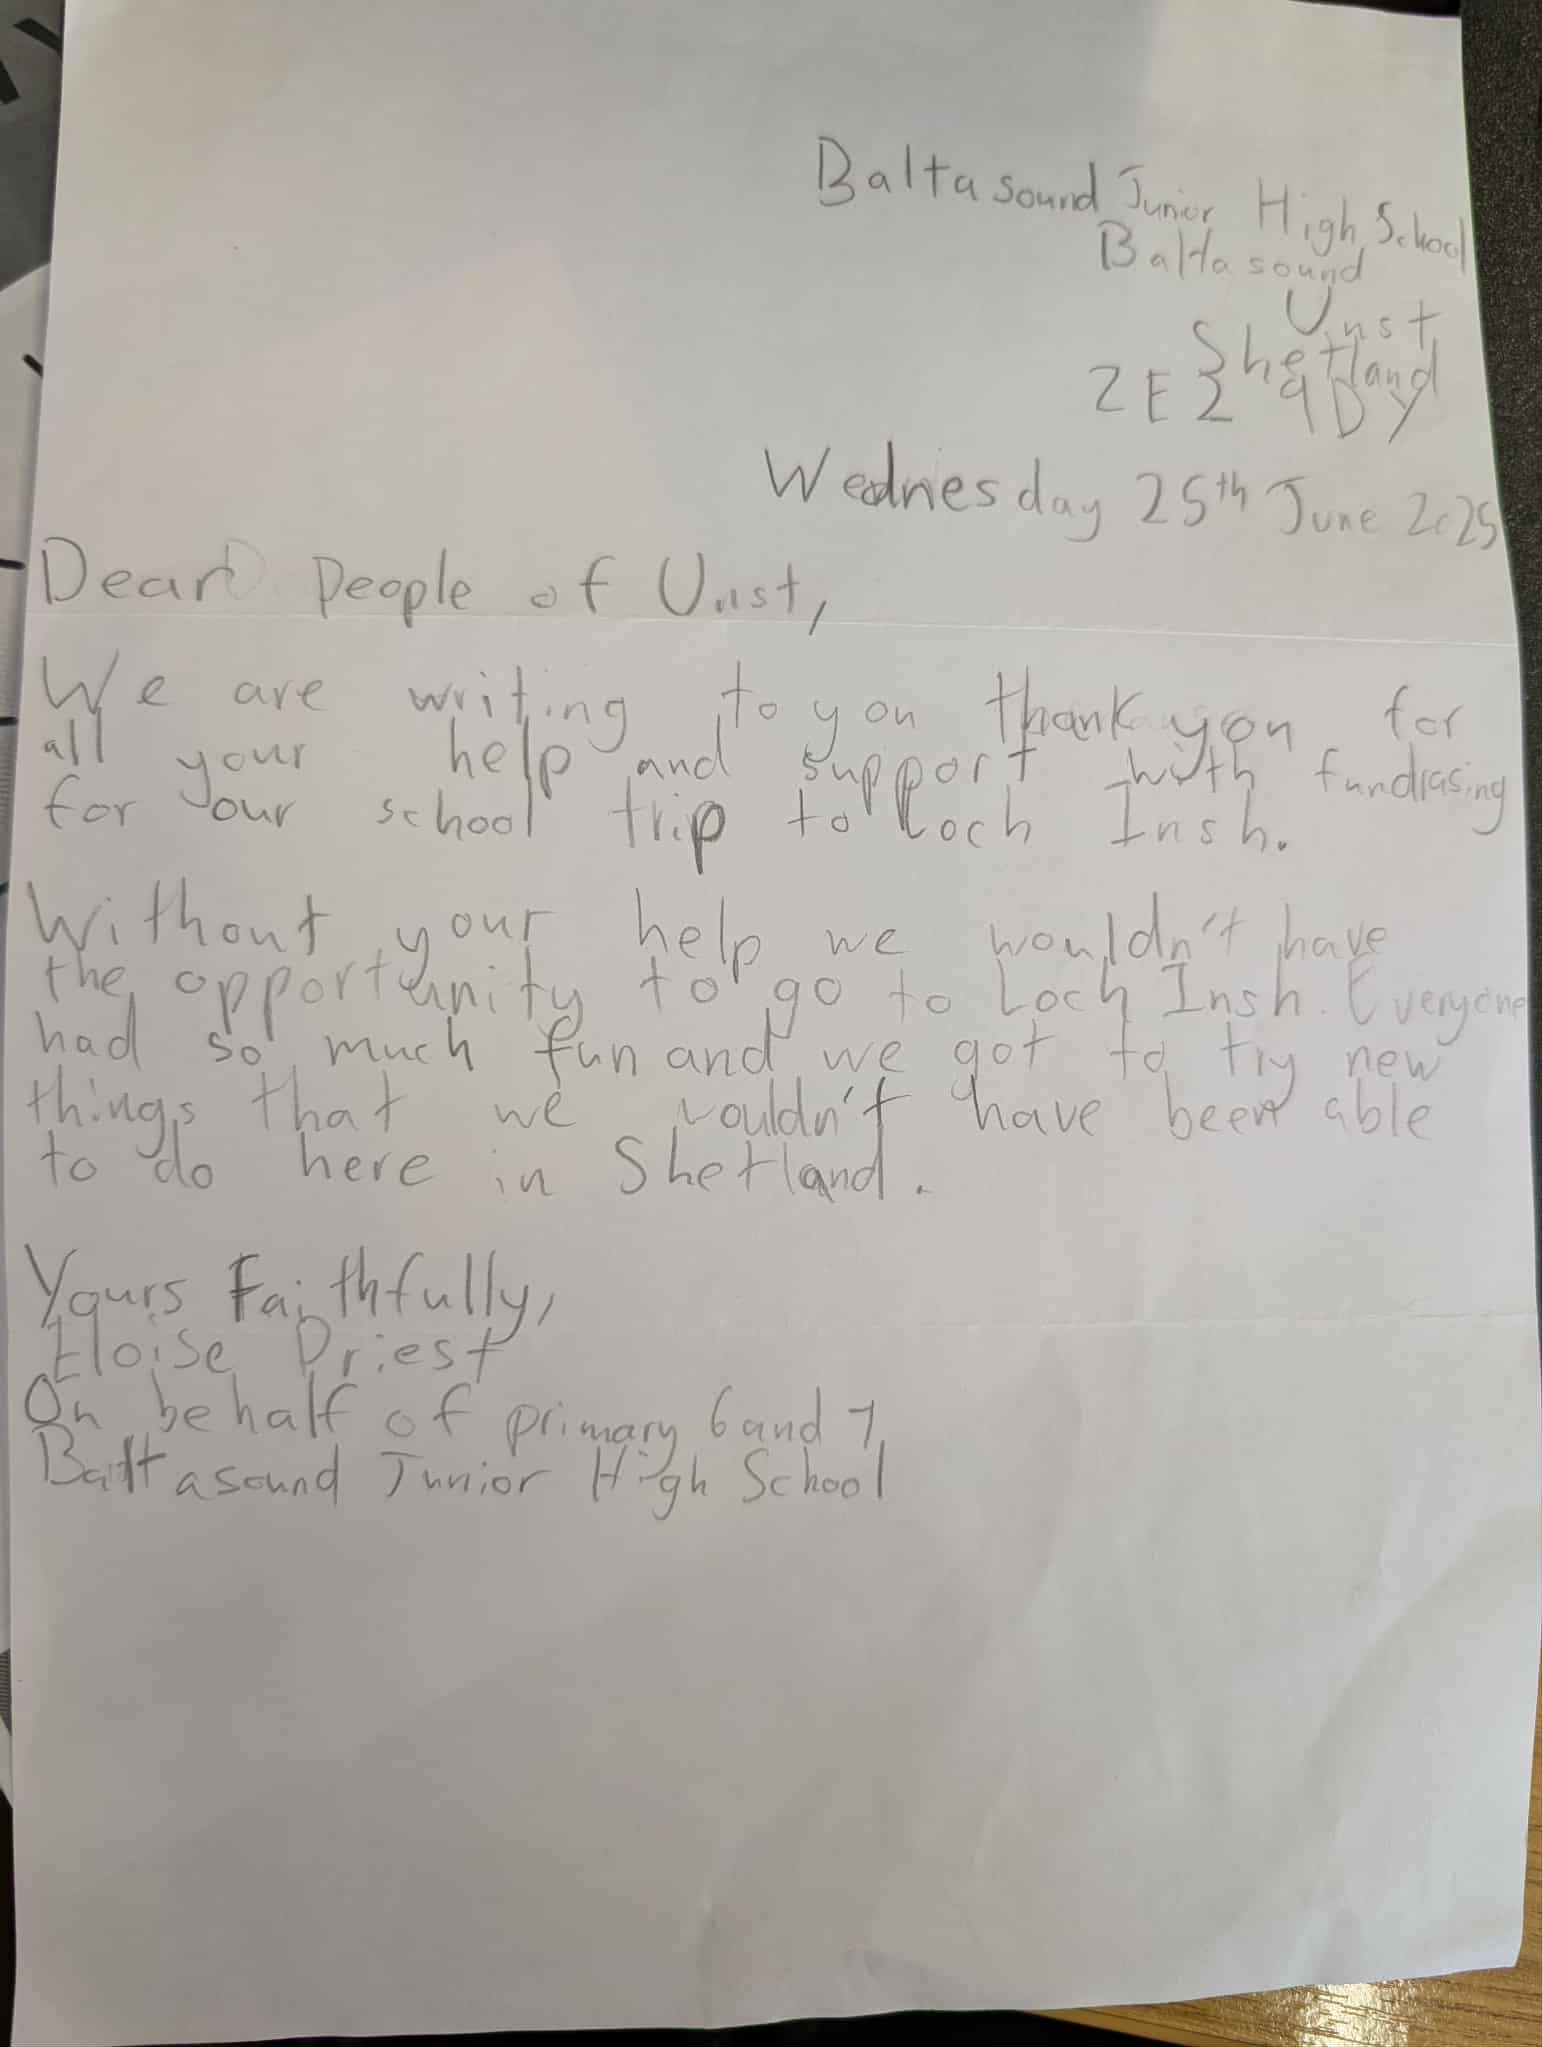 Baltasound Junior High School
Baltasound
Unst
Shetland
ZE2 9DY
Wednesday 25th June 2025
Dear People of Unst,
We are writing to you thank you for
all your help and support with fundrasing
for our school trip to Loch Insh.
Without your help we wouldn't have
the opportunity to go to Loch Insh. Everyone
had so much fun and we got to try new
things that we wouldn't have been able
to do here in Shetland.
Yours Faithfully,
Eloise Priest
On behalf of primary 6 and 7
Baltasound Junior High School